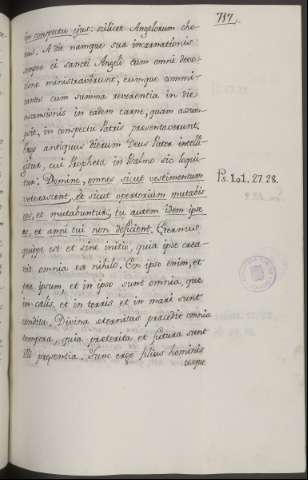 737.
in conspectu ejus: scilicet Angelorum cho-
rus. A die namque sua incarnationis
semper ei sancti Angeli cum omni devo-
tione ministraverunt, eumque commi-
tantes cum summa reverentia in die
ascensionis in eadem carne, quam assum-
psit, in conspectu Patris presentaverunt.
Hus antiquus dierum Deus Pater intelli-
gitur, cui Propheta in Psalmo sic loqui-
tur: Domine, omnes sicut vestimentum
veterascent, et sicut opertorium mutabis
eos, et mutabuntur, tu autem idem ipse
es, et anni tui non deficient. Eternus
quippe est et sine initio, quia ipse crea-
vit omnia ex nihilo. Ex ipso enim, et
per ipsum, et in ipso sunt omnia, que
in celis, et in terris et in mari sunt
condita. Divina eternitas praecedit omnia
tempora, quia preterita et futura sunt
illi presentia. Tunc ergo filius hominis
usque
Ps. 101. 27. 28.